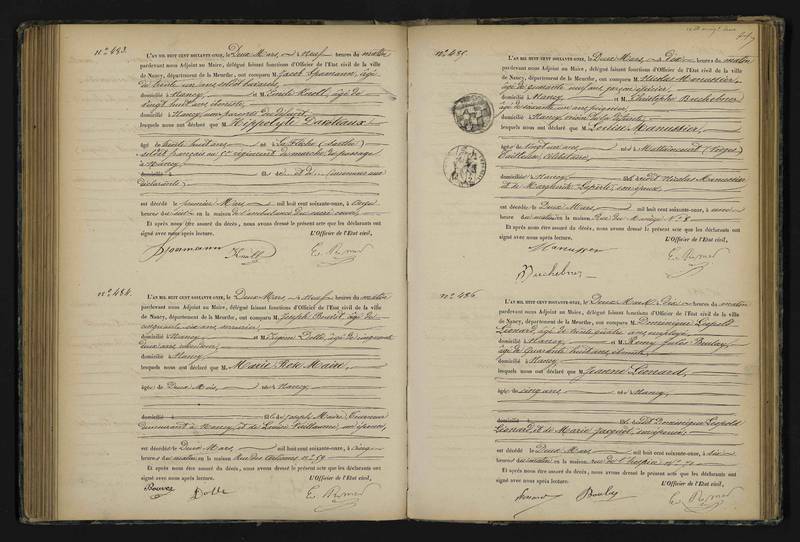 n° 483.
L'AN MIL HUIT CENT SOIXANTE-ONZE, le Deux Mars, à neuf heures du matin
pardevant nous Adjoint au Maire, délégué faisant fonctions d'Officier de l'Etat civil de la ville
de Nancy, département de la Meurthe, ont comparu M. Jacob âgé
de trente un ans
domicilié à Nancy, et M. Emile Knoll, âgé de
vingt huit ans
domicilié à Nancy, non parents du défunt
lesquels nous ont déclaré que M. Hippolyte
âgé de vingt huit ans né à La Flèche (Sarthe)
soldat français au régiment de marche de passage
à Nancy
domicilié à fils de et de inconnus aux
déclarants
est décédé le premier Mars, mil huit cent soixante-onze, à
heures du soir en la maison de l'ambulance du sacré coeur,
Et après nous être assuré du décès, nous avons dressé le présent acte que les déclarants ont
signé avec nous après lecture. L'Officier de l'Etat civil,
Knoll
n° 484.
L'AN MIL HUIT CENT SOIXANTE-ONZE, le Deux Mars, à neuf heures du matin
pardevant nous Adjoint au Maire, délégué faisant fonctions d'Officier de l'Etat civil de la ville
de Nancy, département de la Meurthe, ont comparu M. Joseph âgé de
cinquante six ans
domicilié à Nancy et M. âgé de cinquante
deux ans
domicilié à Nancy
lesquels nous ont déclaré que M. Marie Rose Maire,
âgée de Deux Mois, née à Nancy
domicilié à fille de Joseph Maire, Tourneur
demeurant à Nancy, et de Louise Guillaume, son épouse,
est décédée le Deux Mars, mil huit cent soixante-onze, à cinq
heures du matin en la maison Rue des Artisans n° 59
Et après nous être assuré du décès, nous avons dressé le présent acte que les déclarants ont
signé avec nous après lecture. L'Officier de l'Etat civil,
n° 485.
L'AN MIL HUIT CENT SOIXANTE-ONZE, le Deux Mars, à Dix heures du matin
pardevant nous Adjoint au Maire, délégué faisant fonctions d'Officier de l'Etat civil de la ville
de Nancy, département de la Meurthe, ont comparu M. Nicolas Manussier,
âgé de quarante neuf ans
domicilié à Nancy et M. Christophe Buchebner
âgé de soixante un ans
domicilié à Nancy voisin de la défunte,
lesquels nous ont déclaré que M. Louise Manussier,
âgée de vingt un ans née à Mattaincourt (Vosges)
Tailleuse, célibataire,
domiciliée à Nancy, fille de dit Nicolas Manussier
et de Marguerite son épouse,
est décédée le Deux Mars, mil huit cent soixante-onze, à
heure du matin en la maison Rue du Manège N° 8
Et après nous être assuré du décès, nous avons dressé le présent acte que les déclarants ont
signé avec nous après lecture. L'Officier de l'Etat civil,
Buchebner
n° 486.
L'AN MIL HUIT CENT SOIXANTE-ONZE, le Deux Mars, à Dix heures du matin
pardevant nous Adjoint au Maire, délégué faisant fonctions d'Officier de l'Etat civil de la ville
de Nancy, département de la Meurthe, ont comparu M. Dominique Léopold
Léonard, âgé de trente quatre ans employé,
domicilié à Nancy et M. Remy Jules Boulay,
âgé de quarante huit ans
domicilié à Nancy
lesquels nous ont déclaré que M. Jeanne Léonard,
âgée de cinq ans née à Nancy,
domicilié à fille de dit Dominique Léopold
Léonard et de Marie Jacquot, son épouse,
est décédée le Deux Mars mil huit cent soixante-onze, à six
heures du matin en la maison rue de l'hospice n° 71
Et après nous être assuré du décès, nous avons dressé le présent acte que les déclarants ont
signé avec nous après lecture. L'Officier de l'Etat civil,
Léonard Boulay